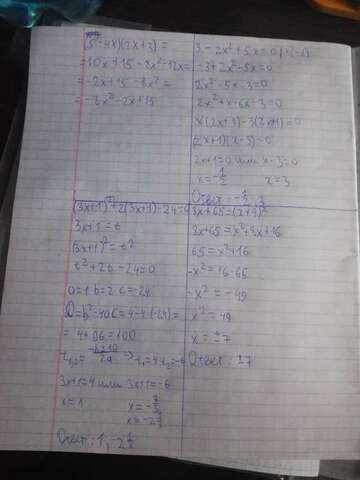 (5-4x)(2x+3)=
=10x+15-8x²-12x=
=-2x+15-8x²=
=-8x²-2x+15
3-2x²+5x=0 |·(-1)
-3+2x²-5x=0
2x²-5x-3=0
2x²+x-6x-3=0
x(2x+3)-3(2x+1)=0
(2x+1)(x-3)=0
2x+1=0 или x-3=0
x=-1/2 x=3
Ответ: -1/2, 3
(3x+1)²+2(3x+1)-24=0
3x+1=t
(3x+1)²=t²
t²+2t-24=0
a=1 b=2 c=-24
D=b²-4ac=4-4·(-24)=
=4+96=100
t₁,₂=(-b±10)/2a => t₁=4 t₂=-6
3x+1=4 или 3x+1=-6
x=1 x=-7/3
x=-2 1/3
Ответ: 1, -2 1/3
8x+65=(x+4)²
8x+65=x²+8x+16
65=x²+16
-x²=16-65
-x²=-49
x²=49
x=±7
Ответ: ±7